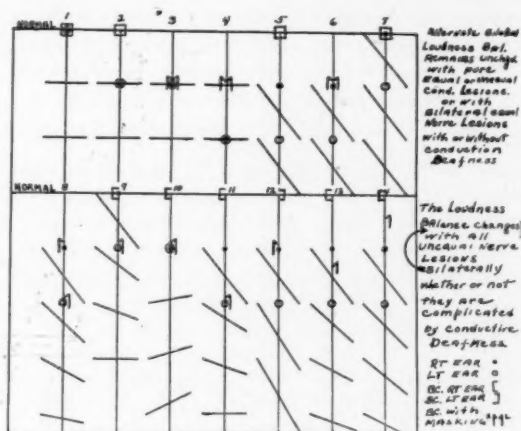 1 2 3 4 5 6 7
NORMAL
Alternate Bilateral
Loudness Bal.
Remains unchgd
with pure
Equal or unequal
Cond. Lesions
or with
Bilateral equal
Nerve Lesions
with or without
conduction
Deafness
NORMAL 8 9 10 11 12 13 14
The Loudness
Balance changes
with all
unequal Nerve
Lesions
Bilaterally
whether or not
they are
complicated
by conductive
Deafness
RT EAR
LT EAR
BC. RT EAR [
BC. LT EAR ]
BC. with
MASKING